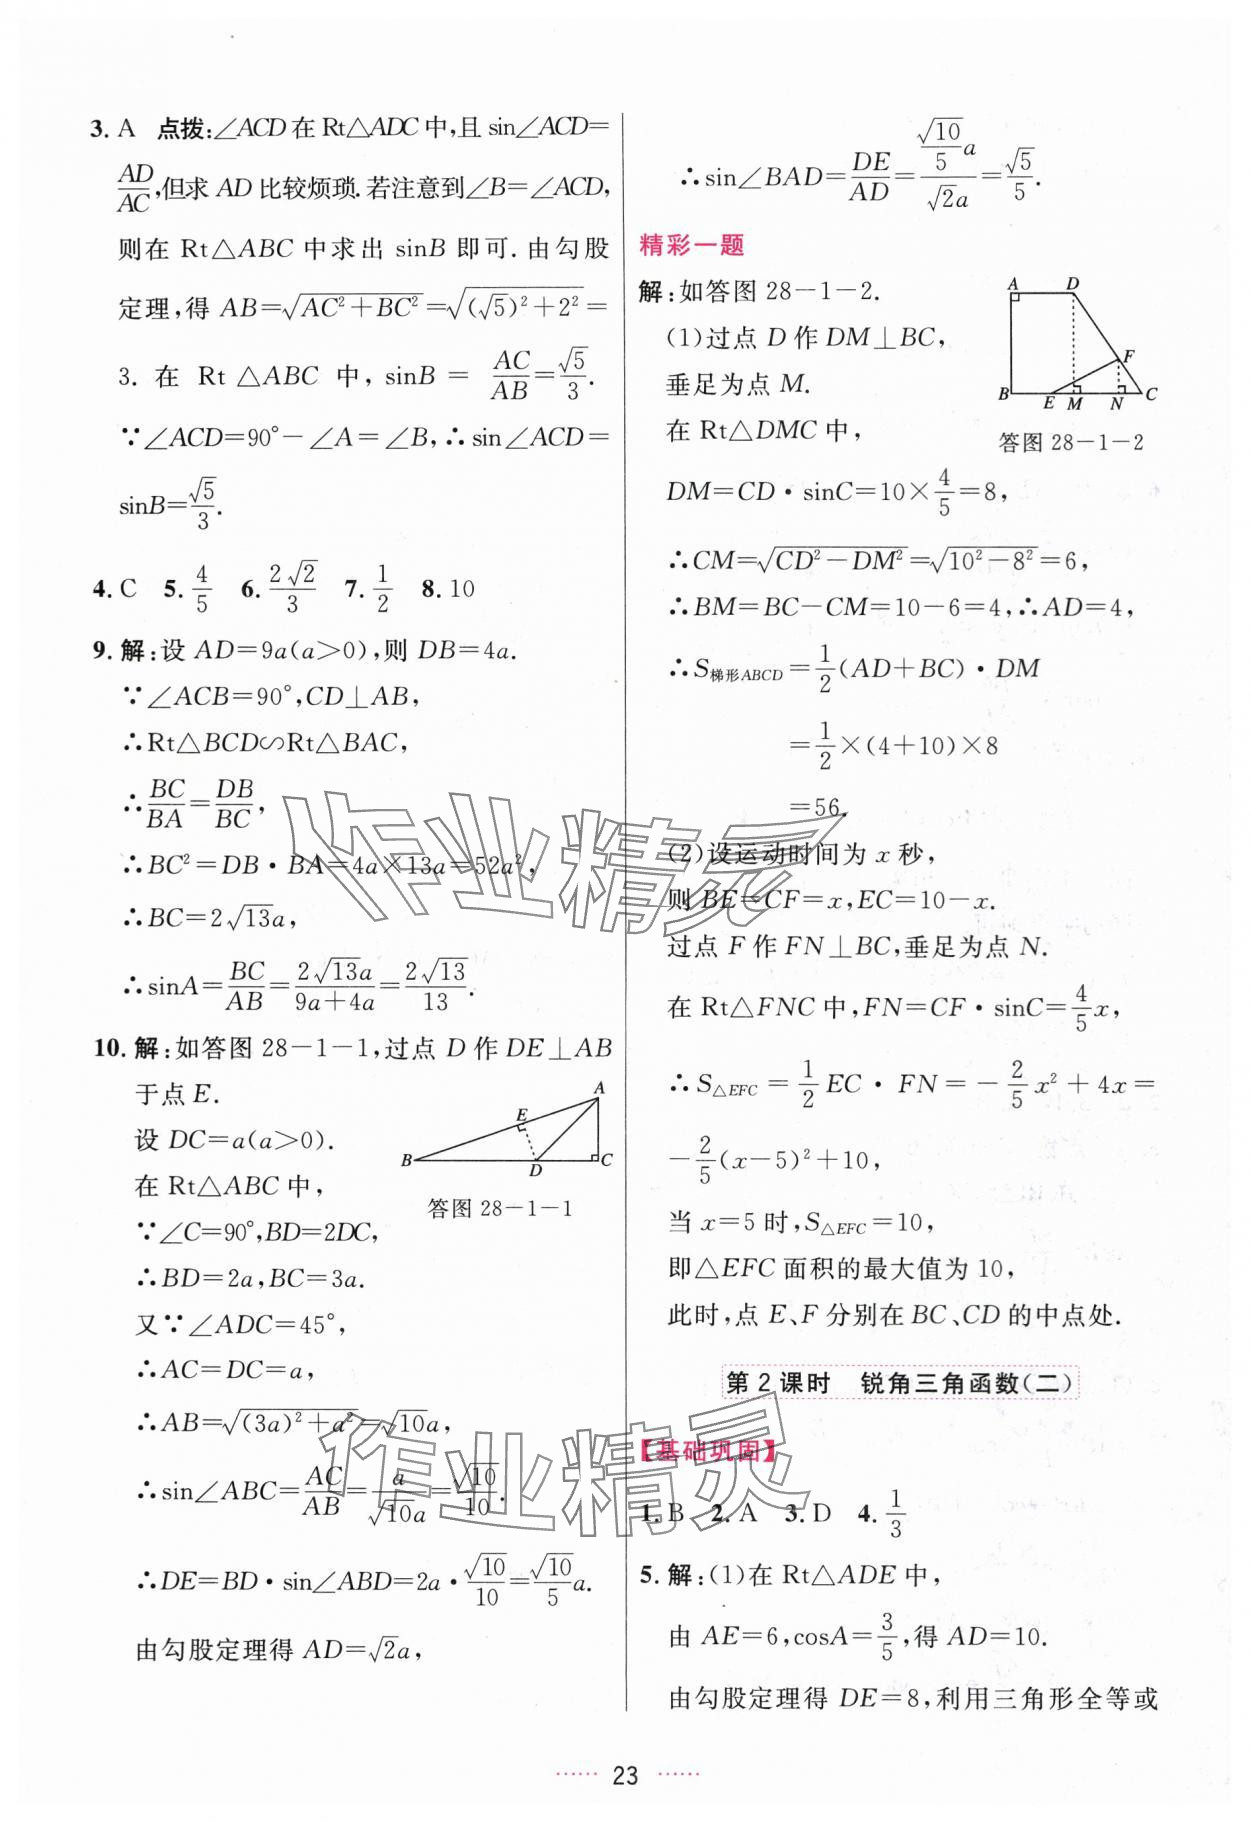 3. A 点拨:∠ACD 在 Rt△ADC 中,且 sin∠ACD=
AD/AC,但求 AD 比较烦琐.若注意到∠B=∠ACD,
则在 Rt△ABC 中求出 sinB 即可.由勾股
定理,得 AB=√(AC²+BC²)=√((√5)²+2²)=
3. 在 Rt△ABC 中, sinB = AC/AB=√5/3.
∵∠ACD=90°-∠A=∠B,∴sin∠ACD=
sinB=√5/3.
4. C 5. 4/5 6. 2√2/3 7. 1/2 8. 10
9. 解:设 AD=9a(a>0),则 DB=4a.
∵∠ACB=90°,CD⊥AB,
∴Rt△BCD∽Rt△BAC,
∴BC/BA=DB/BC,
∴BC²=DB·BA=4a×13a=52a²,
∴BC=2√13a,
∴sinA=BC/AB=2√13a/(9a+4a)=2√13/13.
10. 解:如答图 28-1-1,过点 D 作 DE⊥AB
于点 E.
设 DC=a(a>0).
在 Rt△ABC 中,
∵∠C=90°,BD=2DC,
∴BD=2a,BC=3a.
又∵∠ADC=45°,
∴AC=DC=a,
∴AB=√((3a)²+a²)=√10a,
∴sin∠ABC=AC/AB=a/√10a=√10/10.
∴DE=BD·sin∠ABD=2a·√10/10=√10/5a.
由勾股定理得 AD=√2a,
A
E
B
D
C
答图 28-1-1
∴sin∠BAD=DE/AD=(√10/5a)/(√2a)=√5/5.
精彩一题
解:如答图 28-1-2.
(1)过点 D 作 DM⊥BC,
垂足为点 M.
在 Rt△DMC 中,
A D
F
B E M N C
答图 28-1-2
DM=CD·sinC=10×4/5=8,
∴CM=√(CD²-DM²)=√(10²-8²)=6,
∴BM=BC-CM=10-6=4,∴AD=4,
∴S梯形ABCD=1/2(AD+BC)·DM
=1/2×(4+10)×8
=56.
(2)设运动时间为 x 秒,
则 BE=CF=x,EC=10-x.
过点 F 作 FN⊥BC,垂足为点 N.
在 Rt△FNC 中,FN=CF·sinC=4/5x,
∴S△EFC = 1/2 EC· FN = -2/5 x² + 4x =
-2/5(x-5)²+10,
当 x=5 时,S△EFC=10,
即△EFC 面积的最大值为 10,
此时,点 E、F 分别在 BC、CD 的中点处.
第 2 课时 锐角三角函数(二)
【基础巩固】
1. B 2. A 3. D 4. 1/3
5. 解:(1)在 Rt△ADE 中,
由 AE=6,cosA=3/5,得 AD=10.
由勾股定理得 DE=8,利用三角形全等或
作业精灵
作业精灵
······ 23 ······